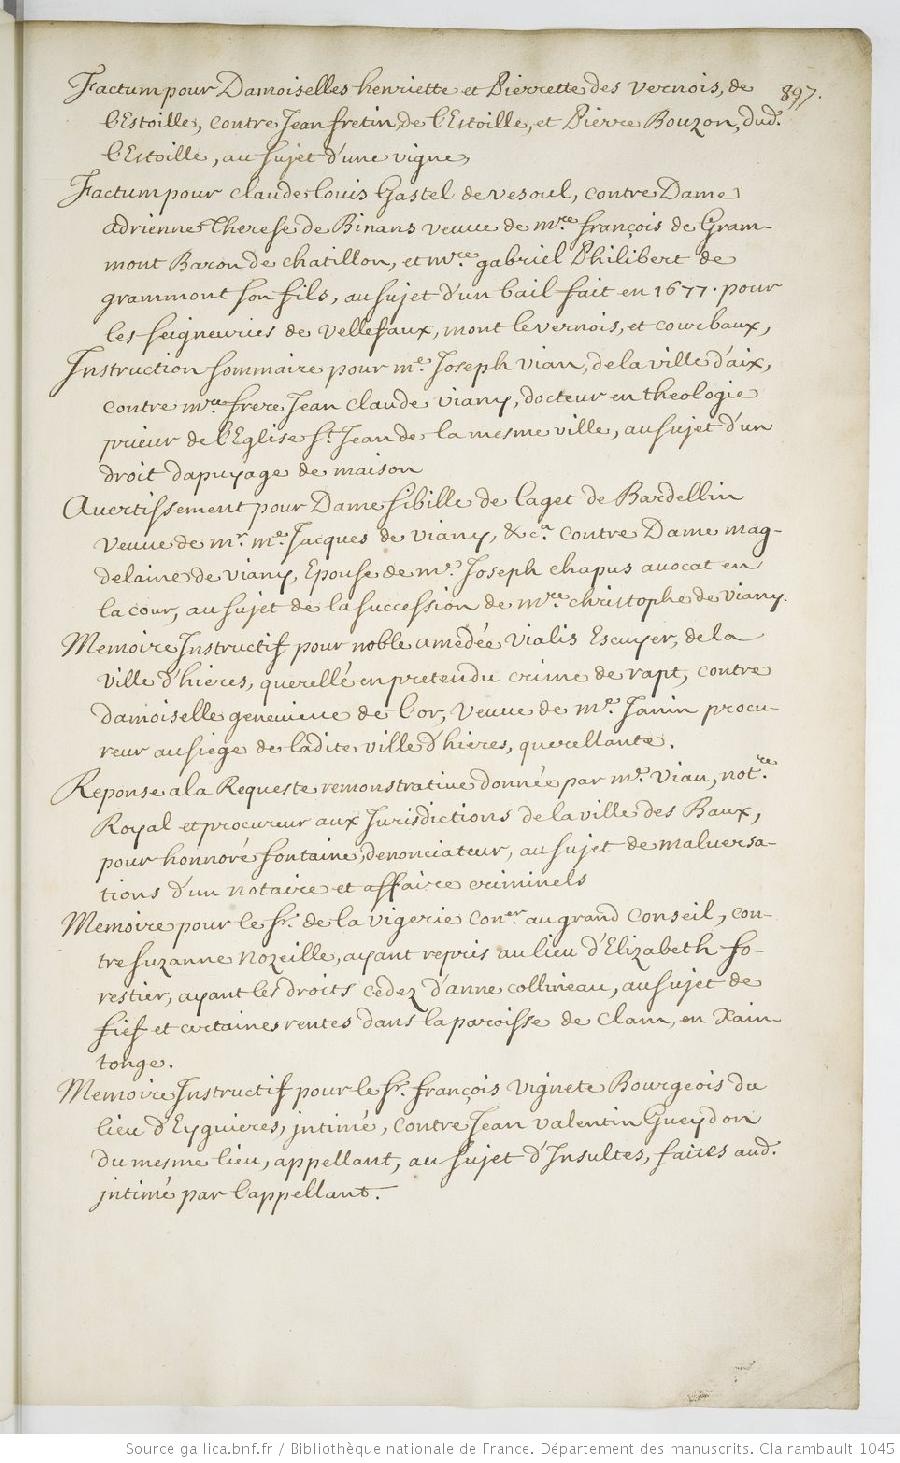 Factum pour Damoiselles henriette et Pierrette des vernois, de
l'Estoille, contre Jean fretin de l'Estoille, et Pierre Bouzon, dud.
l'Estoille, au sujet d'une vigne,
897.
Factum pour claude louis Gastel de vesoul, contre Dame
adrienne Therese de Binans veuue de mre. françois de Gram-
mont Baron de chatillon, et mre. gabriel Philibert de
grammont son fils, au sujet d'un bail fait en 1677. pour
les seigneuries de vellefaux, mont le vernois, et courbaux,
Instruction sommaire pour me. Joseph vian, de la ville d'aix,
contre mre frere Jean claude viany, docteur en theologie
prieur de l'Eglise St. Jean de la mesme ville, au sujet d'un
droit d'apuyage de maison
Auertissement pour Dame sibille de laget de Bardellin
veuue de mr. me. Jacques de viany, &ca. contre Dame mag-
delaine de viany, Epouse de me. Joseph chapus auocat en
la cour, au sujet de la succession de mre. christophe de viany.
Memoire Instructif pour noble amedée vialis Escuyer, de la
ville d'hieres, querellé en pretendu crime de rapt, contre
damoiselle geneuieue de Cor, veuue de me. Janin procu-
reur au siege de ladite ville d'hieres, querellante.
Reponse a la Requeste remonstratiue donnée par me. viau, notre.
Royal et procureur aux Jurisdictions de la ville des Baux,
pour honnoré fontaine, denonciateur, au sujet de maluersa-
tions d'un notaire et affaire criminels
Memoire pour le sr. de la vigerie coner au grand conseil, con-
tre suzanne nozeille, ayant repris au lieu d'Elizabeth fo-
restier, ayant les droits cedez d'anne collineau, au sujet de
fief et certaines rentes dans la paroisse de clam, en Xain
tonge.
Memoire Instructif pour le sr. françois vignete Bourgeois du
lieu d'Eyguieres, intimé, contre Jean valentin Gueydon
du mesme lieu, appellant, au sujet d'Insultes, faites aud.
intimé par l'appellant.
Source gallica.bnf.fr / Bibliothèque nationale de France. Département des manuscrits. Clairambault 1045